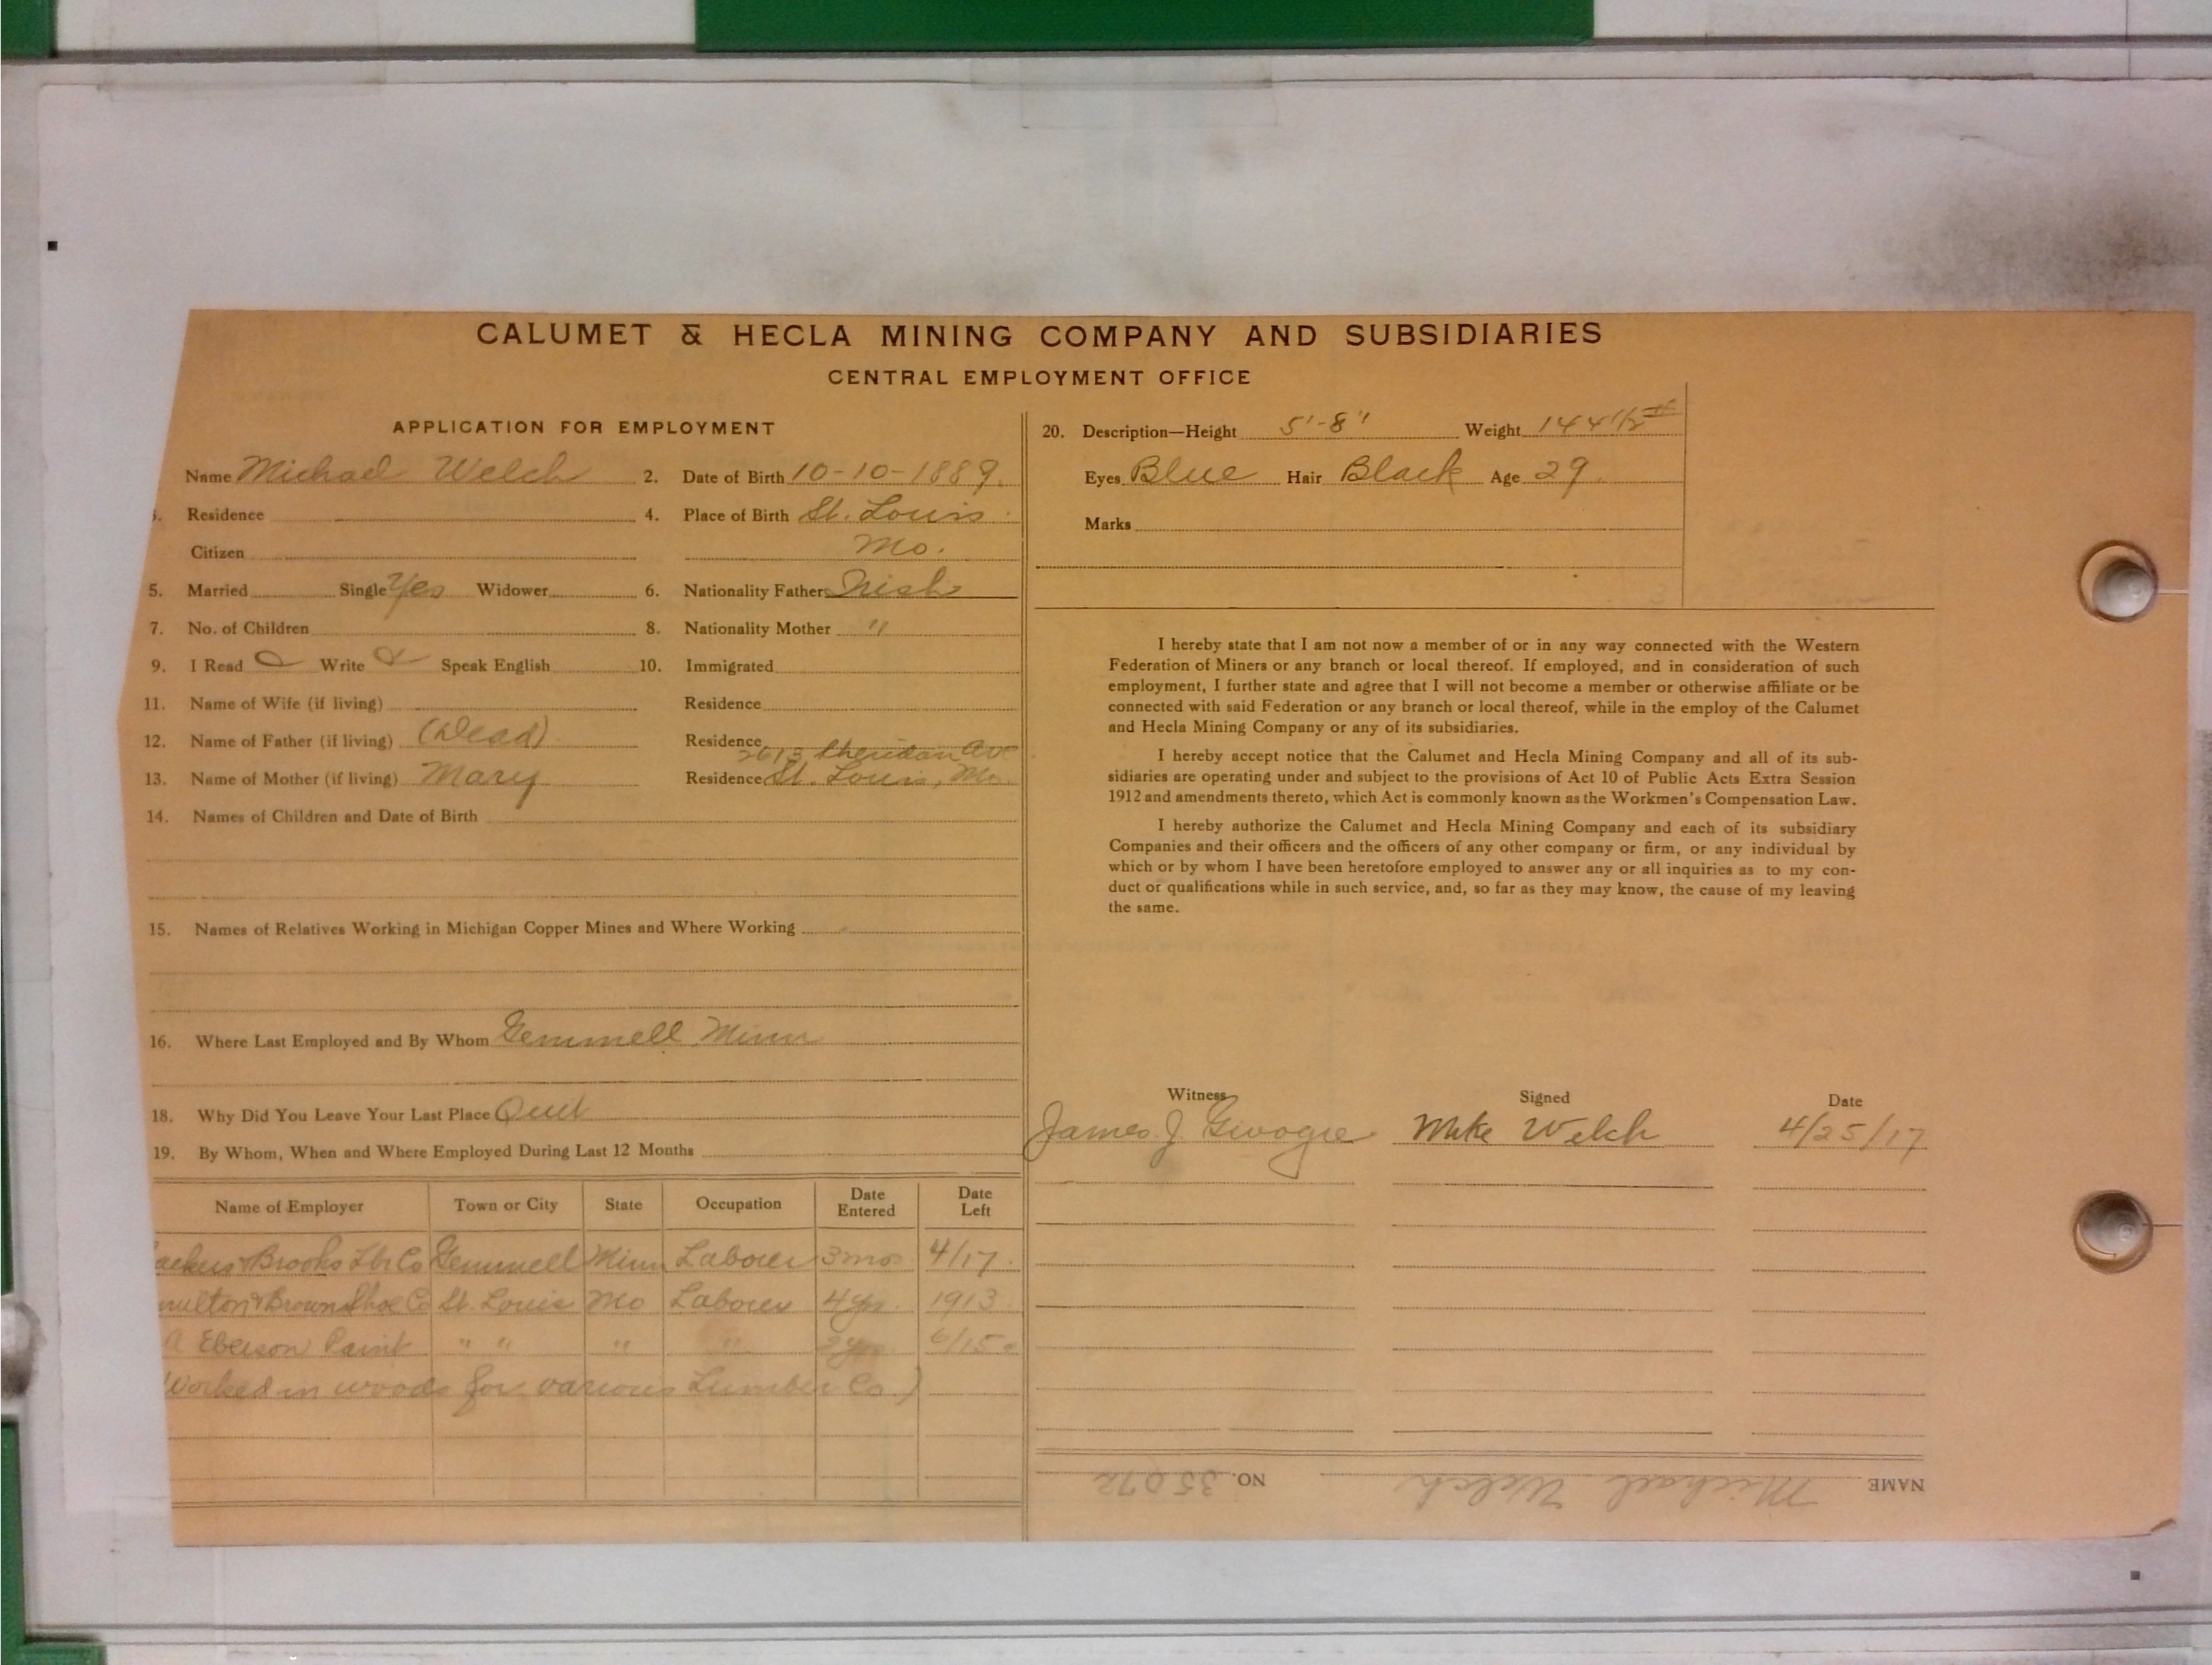 CALUMET & HECLA MINING COMPANY AND SUBSIDIARIES
CENTRAL EMPLOYMENT OFFICE
APPLICATION FOR EMPLOYMENT
Name Michael Welch 2. Date of Birth 10-10-1889.
Residence 4. Place of Birth St. Louis
Citizen Mo.
5. Married Single Yes Widower 6. Nationality Father Irish
7. No. of Children 8. Nationality Mother "
9. I Read Write Speak English 10. Immigrated
11. Name of Wife (if living) Residence
12. Name of Father (if living) (Dead) Residence
2613 Sheridan Av
13. Name of Mother (if living) Mary Residence St. Louis, Mo.
14. Names of Children and Date of Birth
15. Names of Relatives Working in Michigan Copper Mines and Where Working
16. Where Last Employed and By Whom Gemmell Minn
18. Why Did You Leave Your Last Place Quit
19. By Whom, When and Where Employed During Last 12 Months
Name of Employer Town or City State Occupation Date Entered Date Left
Brooks Lbr Co Gemmell Minn Laborer 3 mo 4/17.
& Brown Shoe Co St. Louis Mo Laborer 4 yrs. 1913
A Eberson Paint " " " " 2 yrs. 6/15
Worked in woods for various Lumber Co.)
20. Description—Height 5'-8" Weight 144 1/2 #
Eyes Blue Hair Black Age 29.
Marks
I hereby state that I am not now a member of or in any way connected with the Western
Federation of Miners or any branch or local thereof. If employed, and in consideration of such
employment, I further state and agree that I will not become a member or otherwise affiliate or be
connected with said Federation or any branch or local thereof, while in the employ of the Calumet
and Hecla Mining Company or any of its subsidiaries.
I hereby accept notice that the Calumet and Hecla Mining Company and all of its sub-
sidiaries are operating under and subject to the provisions of Act 10 of Public Acts Extra Session
1912 and amendments thereto, which Act is commonly known as the Workmen's Compensation Law.
I hereby authorize the Calumet and Hecla Mining Company and each of its subsidiary
Companies and their officers and the officers of any other company or firm, or any individual by
which or by whom I have been heretofore employed to answer any or all inquiries as to my con-
duct or qualifications while in such service, and, so far as they may know, the cause of my leaving
the same.
Witness Signed Date
James J. Mike Welch 4/25/17
NAME Michael Welch NO. 35072